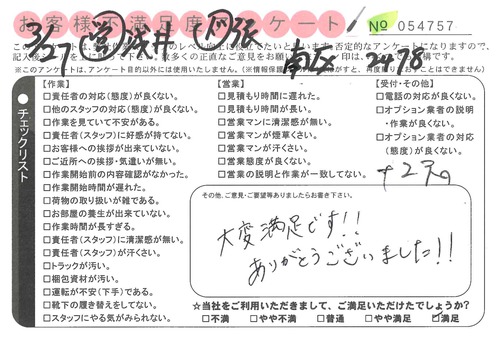 お客様不満足度アンケート № 054757
3/27
南区
【作業】
□責任者の対応(態度)が良くない。
□他のスタッフの対応(態度)が良くない。
□作業を見ていて不安がある。
□責任者(スタッフ)に好感が持てない。
□お客様への挨拶が出来ていない。
□ご近所への挨拶・気遣いが無い。
□作業開始前の内容確認がなかった。
□作業開始時間が遅れた。
□荷物の取り扱いが雑である。
□お部屋の養生が出来ていない。
□作業時間が長すぎる。
□責任者(スタッフ)に清潔感が無い。
□責任者(スタッフ)が汗くさい。
□トラックが汚い。
□梱包資材が汚い。
□運転が不安(下手)である。
□靴下の履き替えをしてない。
□スタッフにやる気がみられない。
【営業】
□見積もり時間に遅れた。
□見積もり時間が長い。
□営業マンに清潔感が無い。
□営業マンが煙草くさい。
□営業マンが汗くさい。
□営業態度が良くない。
□営業の説明と作業が一致してない。
【受付・その他】
□電話の対応が良くない。
□オプション業者の説明
・作業が良くない。
□オプション業者の対応
(態度)が良くない。
チェックリスト
その他、ご意見・ご要望等ありましたらお書き下さい。
大変満足です!!
ありがとうございました!!
☆当社をご利用いただきまして、ご満足いただけたでしょうか?
□不満 □やや不満 □普通 □やや満足 □満足